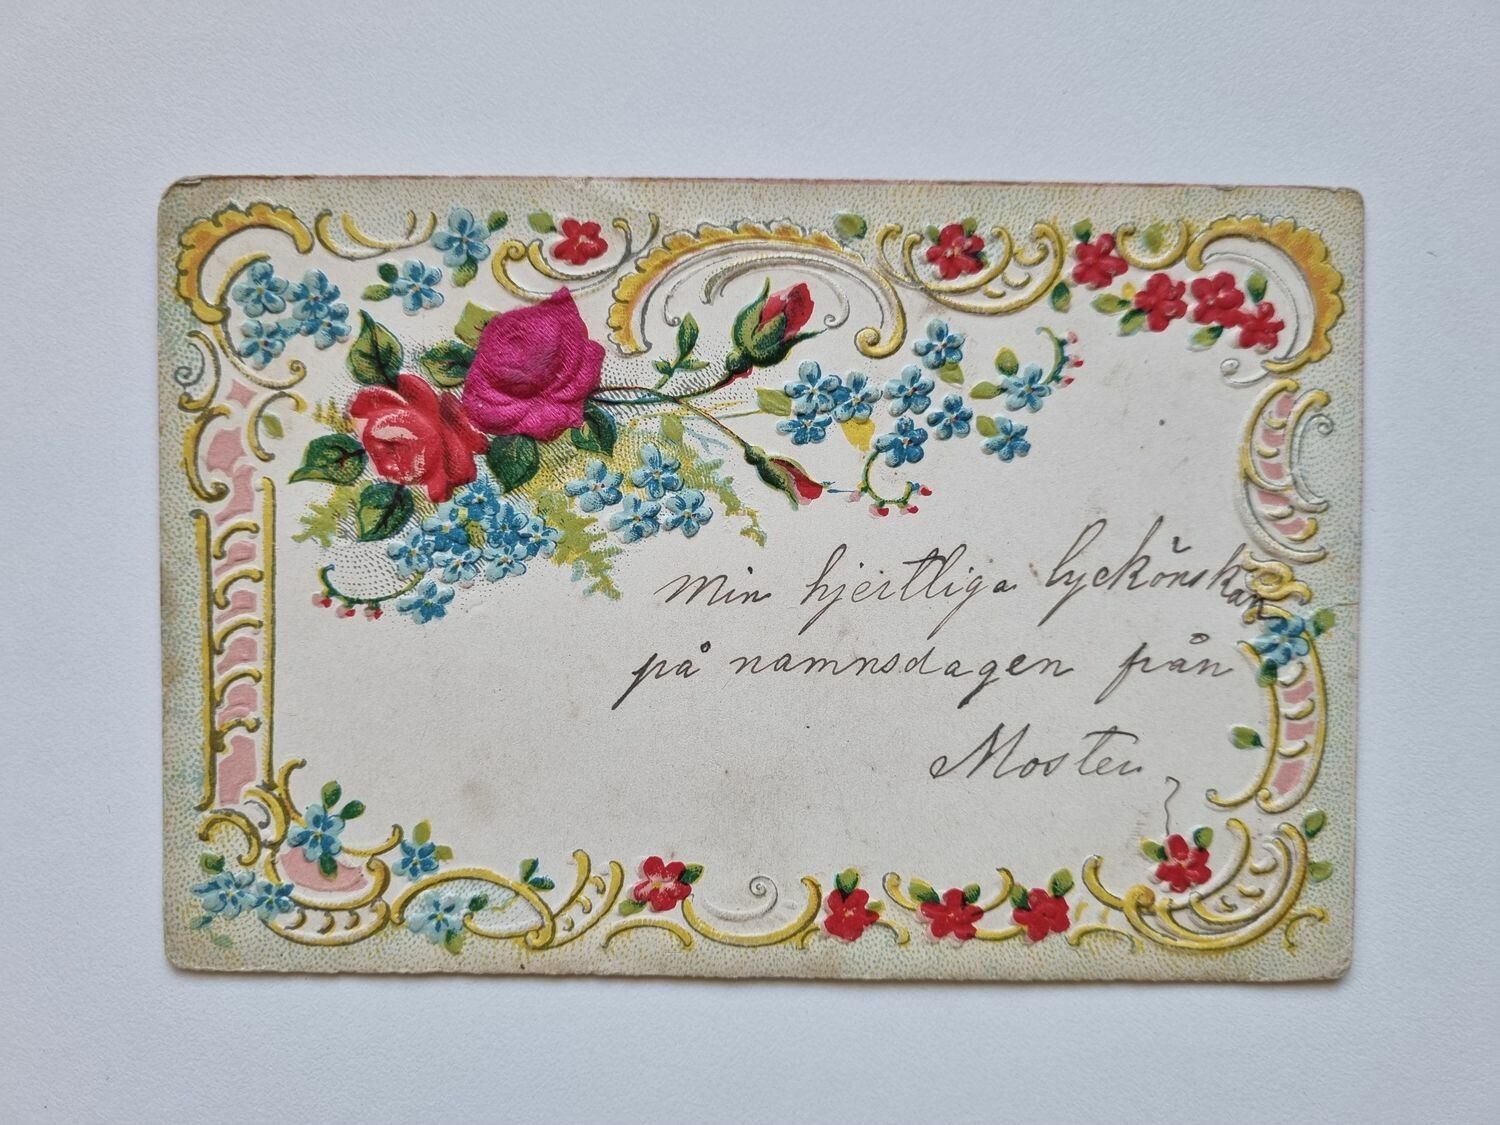 Min hjertliga lyckönskan
på namnsdagen från
Moster